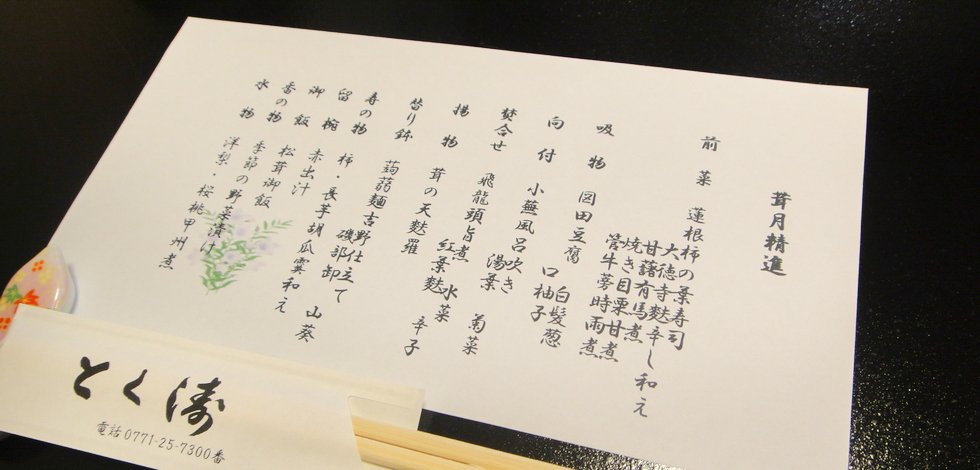 茸月精進
前菜 蓮根柿の葉寿司
大徳寺麩辛し和え
甘藷有馬煮
焼き目栗甘煮
管牛蒡時雨煮
吸物 図田豆腐 白髪葱
口柚子
向付 小蕪風呂吹き
湯葉 菊菜
焚合せ 飛龍頭旨煮 水菜
紅葉麩 辛子
揚物 茸の天麩羅
替り鉢 蒟蒻麺吉野仕立て
磯部卸 山葵
寿の物 柿・長芋胡瓜霙和え
留椀 赤出汁
御飯 松茸御飯
香の物 季節の野菜漬け
水物 洋梨・桜桃甲州煮
とく濤
電話0771-25-7300番